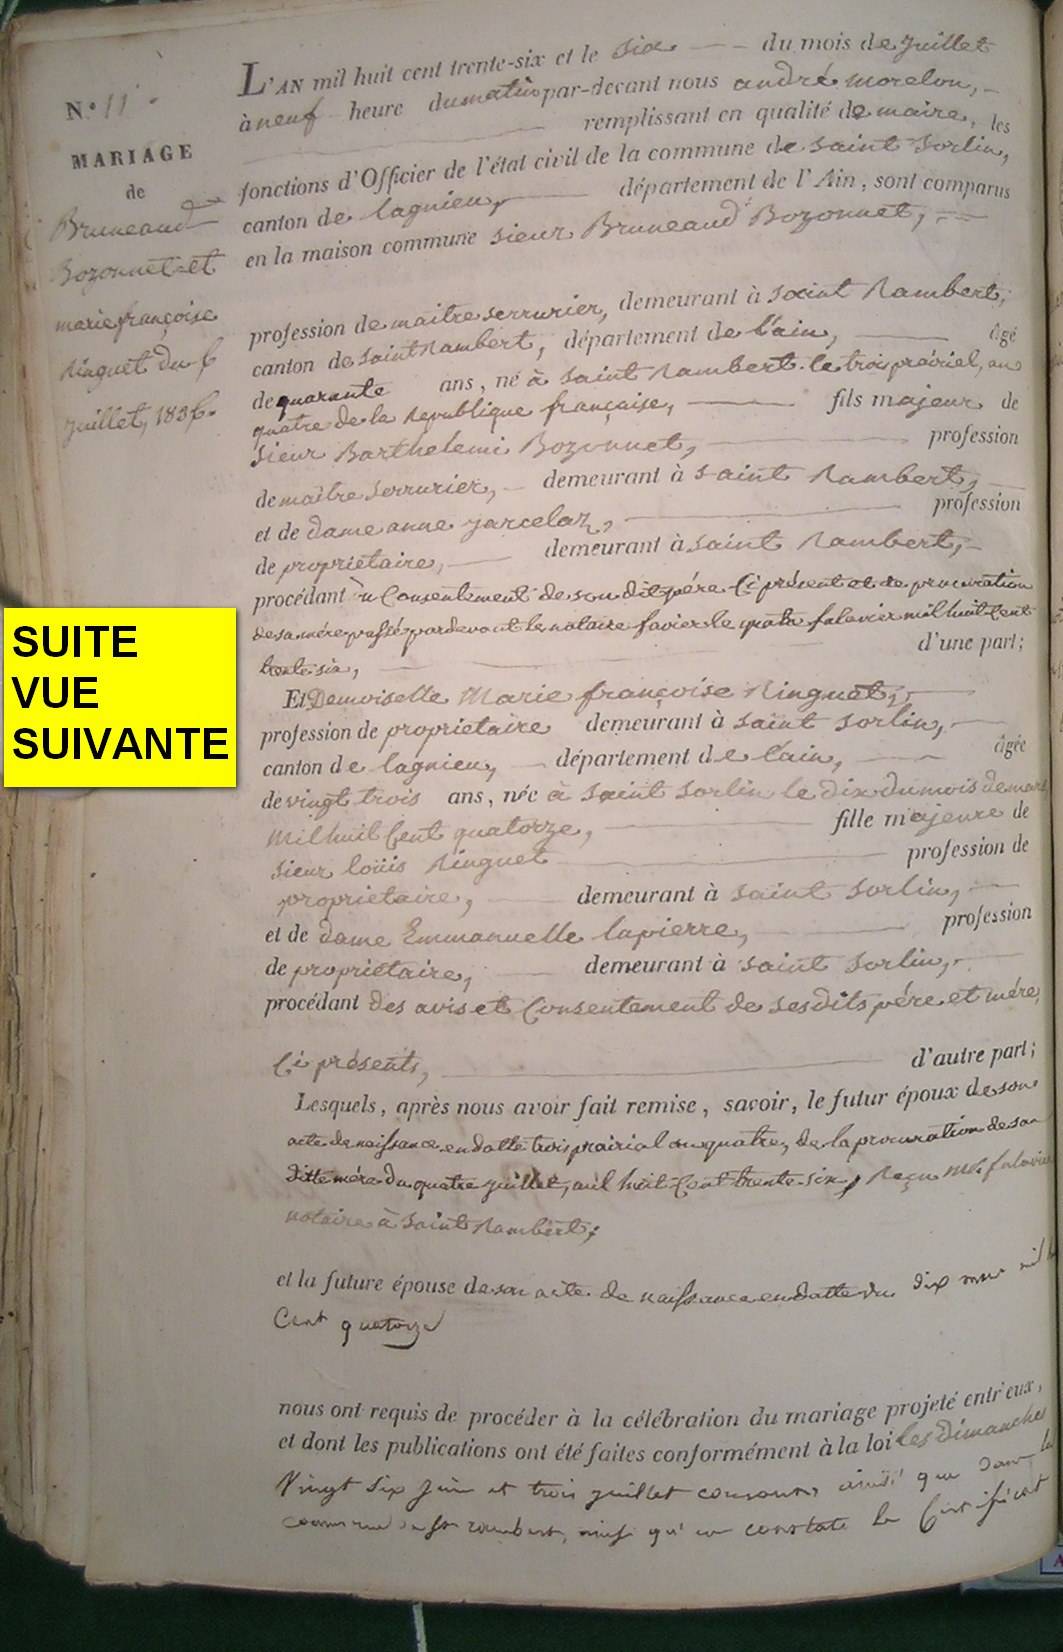 N.° 11
MARIAGE
de
Bruneaud
Bozonnet et
marie françoise
Ringuet du 6
juillet, 1836.
SUITE
VUE
SUIVANTE
L'AN mil huit cent trente-six et le six du mois de juillet
à neuf heure du matin par-devant nous andré morelon,
remplissant en qualité de maire, les
fonctions d'Officier de l'état civil de la commune de saint Sorlin,
canton de lagnieu, département de l'Ain, sont comparus
en la maison commune sieur Bruneaud Bozonnet,
profession de maitre serrurier, demeurant à saint Rambert,
canton de saint Rambert, département de l'ain, âgé
de quarante ans, né à saint Rambert le trois prairiel, an
quatre de la Republique française, fils majeur de
sieur Barthelemi Bozonnet, profession
de maître serrurier, demeurant à saint Rambert,
et de dame anne jarcelat, profession
de propriétaire, demeurant à saint Rambert,
procédant du Consentement de son dit père Ci présent et de procuration
de sa mére passé pardevant le notaire le quatre mil huit Cent
trente-six, d'une part;
Et Demoiselle Marie françoise Ringuet,
profession de propriétaire demeurant à saint Sorlin,
canton de lagnieu, département de l'ain, âgée
de vingt trois ans, née à saint Sorlin le dix du mois de mars
Mil huit Cent quatorze, fille majeure de
sieur loüis Ringuet profession de
propriétaire, demeurant à saint Sorlin,
et de dame Emmanuelle lapierre, profession
de propriétaire, demeurant à saint Sorlin,
procédant des avis et Consentement de ses dits pére et mére,
Ci présents, d'autre part;
Lesquels, après nous avoir fait remise, savoir, le futur époux de son
acte de naissance en datte trois prairial an quatre, de la procuration de sa
ditte mére du quatre juillet, mil huit Cent trente-six, Reçu Me. falavier
notaire à saint Rambert;
et la future épouse de son acte de naissance en datte du dix mars mil
Cent quatorze
nous ont requis de procéder à la célébration du mariage projeté entr'eux,
et dont les publications ont été faites conformément à la loi les dimanches
Vingt six juin et trois juillet courant, ainsi que dans la
commune de St rambert, ainsi qu'en constate le Certificat